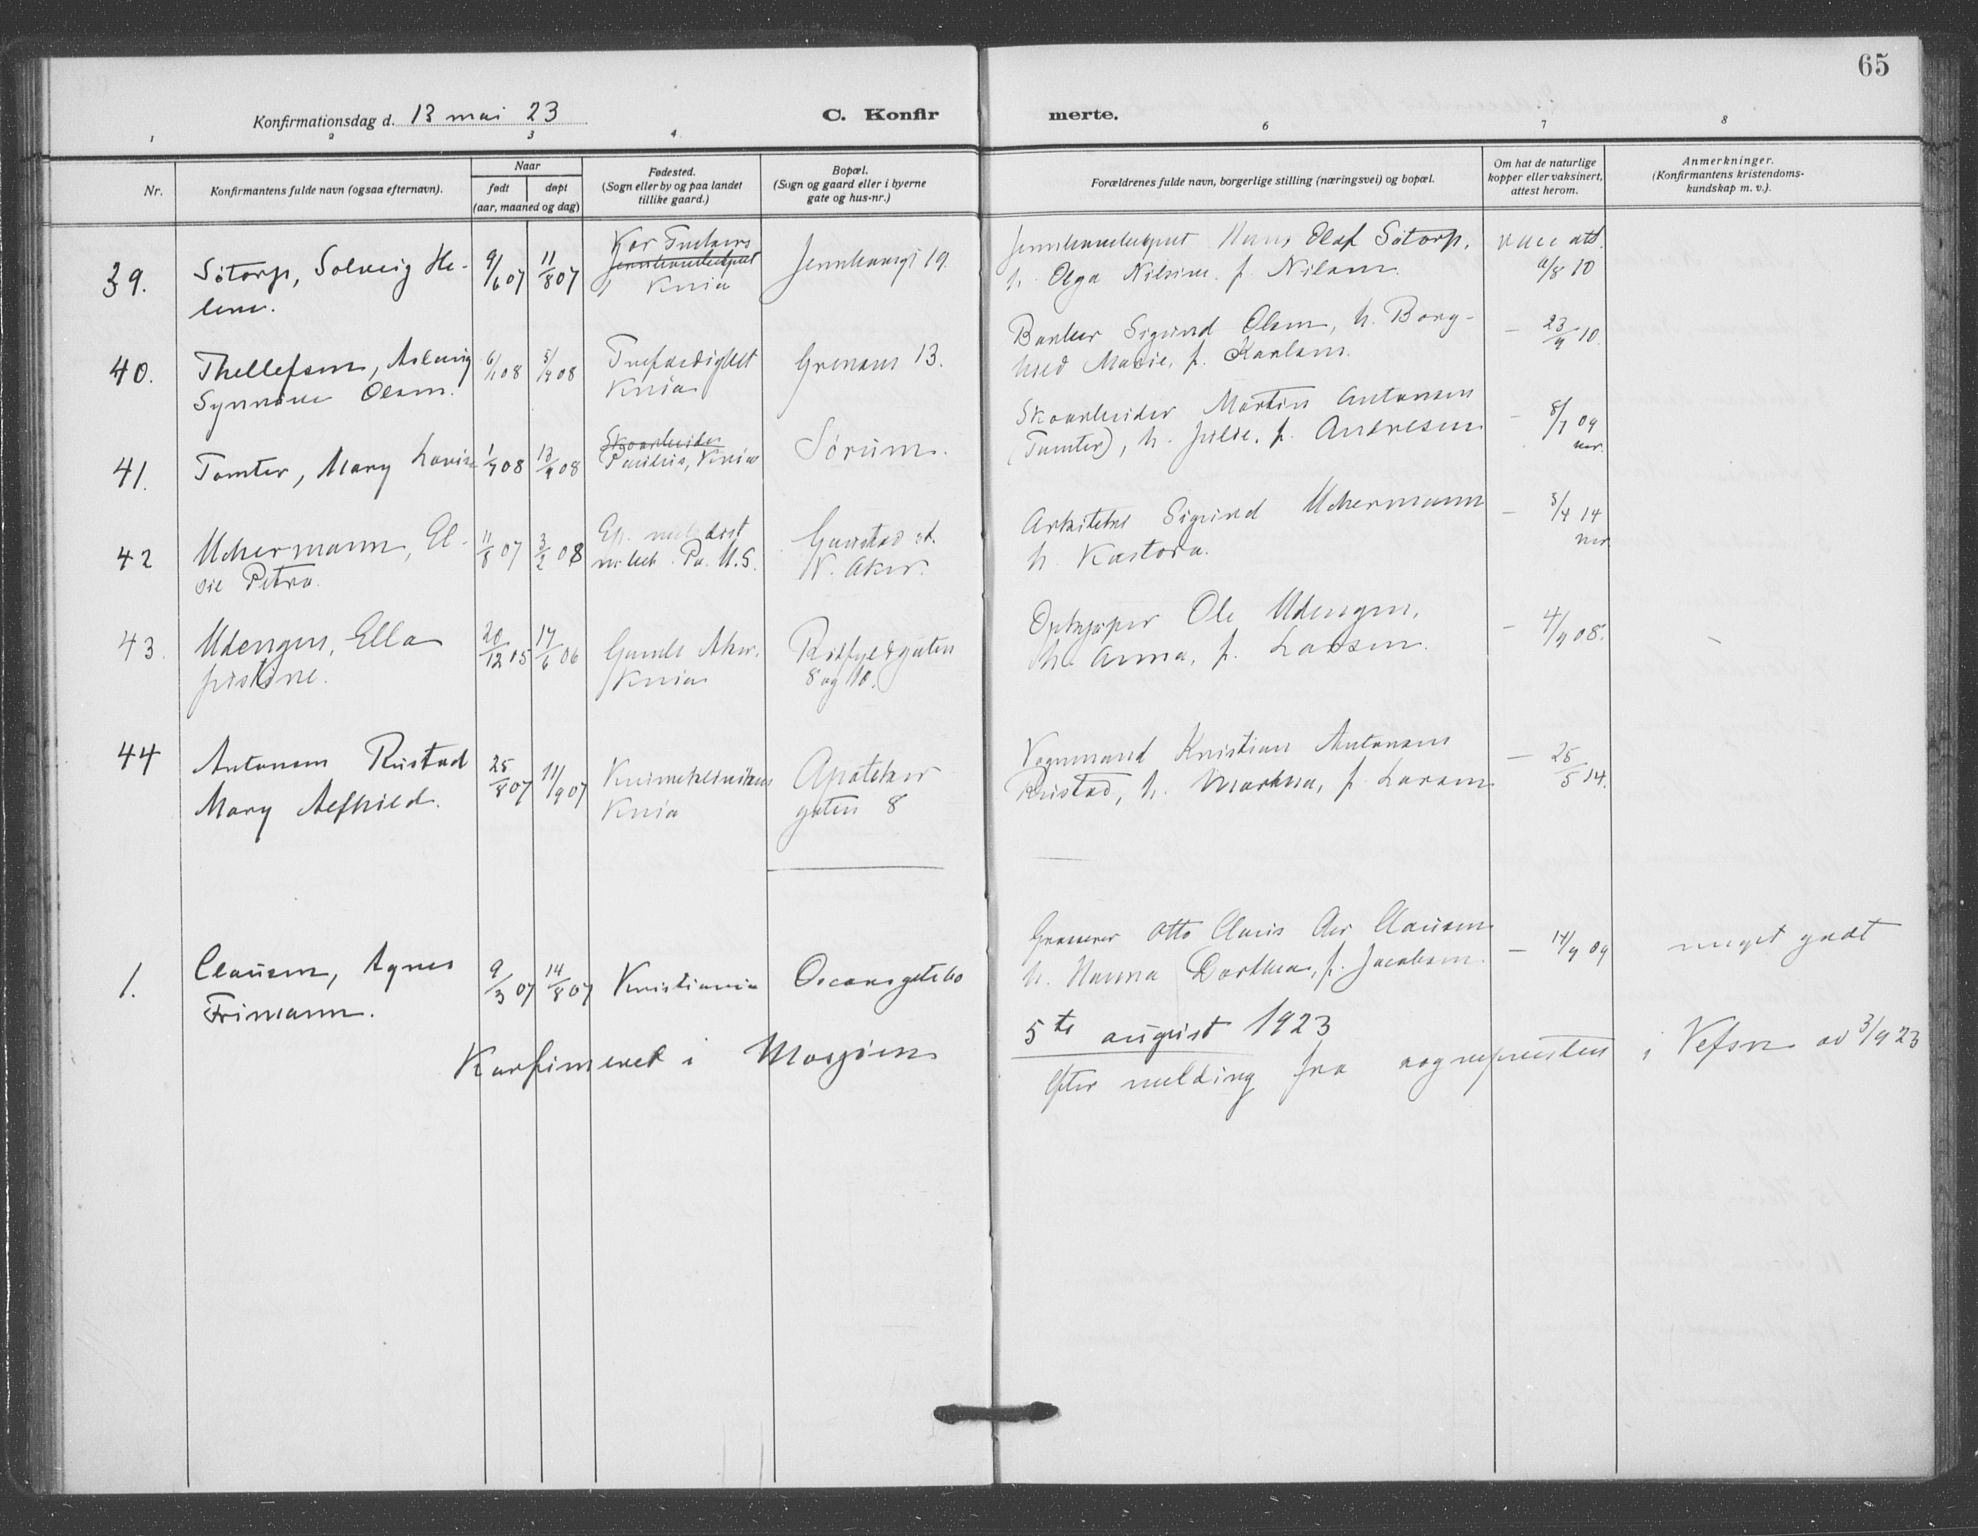 65
Konfirmationsdag d. 13 mai 23
C. Konfir merte.
1 2 3 4 6 7 8
Nr.
Konfirmantens fulde navn (ogsaa efternavn).
Naar
født døpt
(aar, maaned og dag)
Fødested.
(Sogn eller by og paa landet
tillike gaard.)
Bopæl.
(Sogn og gaard eller i byerne
gate og hus-nr.)
Forældrenes fulde navn, borgerlige stilling (næringsvei) og bopæl.
Om hat de naturlige
kopper eller vaksinert,
attest herom.
Anmerkninger.
(Konfirmantens kristendoms-
kundskap m. v.).
39. Søtorp, Solveig He-
lene.
9/6 07 11/8 07
Kria
19.
Hans Olaf Søtorp,
h. Olga Nilsine f. Nilsen
vacc att.
/8 10
40. Thellefsen, Aslaug
Synnøve Olsen.
6/1 08 5/4 08
Trefoldighet
Kria
Grensen 13.
Banker Sigurd Olsen, h. Borg-
hild Marie, f. Karlsen.
— 23/9 10.
41. Tomter, Mary Lovise
1/7 08 13/9 08
Skoarbeider
Paulus, Kria
Sørum.
Skoarbeider Martin Antonsen
(Tomter), h. Julie, f. Andresen
— 8/7 09
rev.
42 Uchermann, El-
sie Petra.
11/8 07 3/2 08
Gaustad st.
V. Aker.
Arkitekt Sigurd Uchermann
h. Kastora.
— 3/4 14
rev
43. Udengen, Ella
Kristine.
20/12 05 17/6 06
Gamle Aker,
Kria
8 og 10.
Opkjøper Ole Udengen,
h. Anna, f. Larsen.
— 4/9 08.
44 Antonsen Rustad
Mary Alfhild.
25/8 07 11/9 07
Kvineklinikken
Kria
Apoteker
gaten 8
Vognmand Kristian Antonsen
Rustad, h. Martha, f. Larsen
— 25/5 14.
1. Clausen, Agnes
Frimann.
9/3 07 14/8 07
Kristiania
Oscarsgate 60
Grosserer Otto Claus Aer Clausen
h. Hanna Dorthea, f. Jacobsen.
— 14/9 09
meget godt
5te august 1923
Konfirmeret i Mosjøen
Efter melding fra sognepresten i Vefsn av 3/9 23